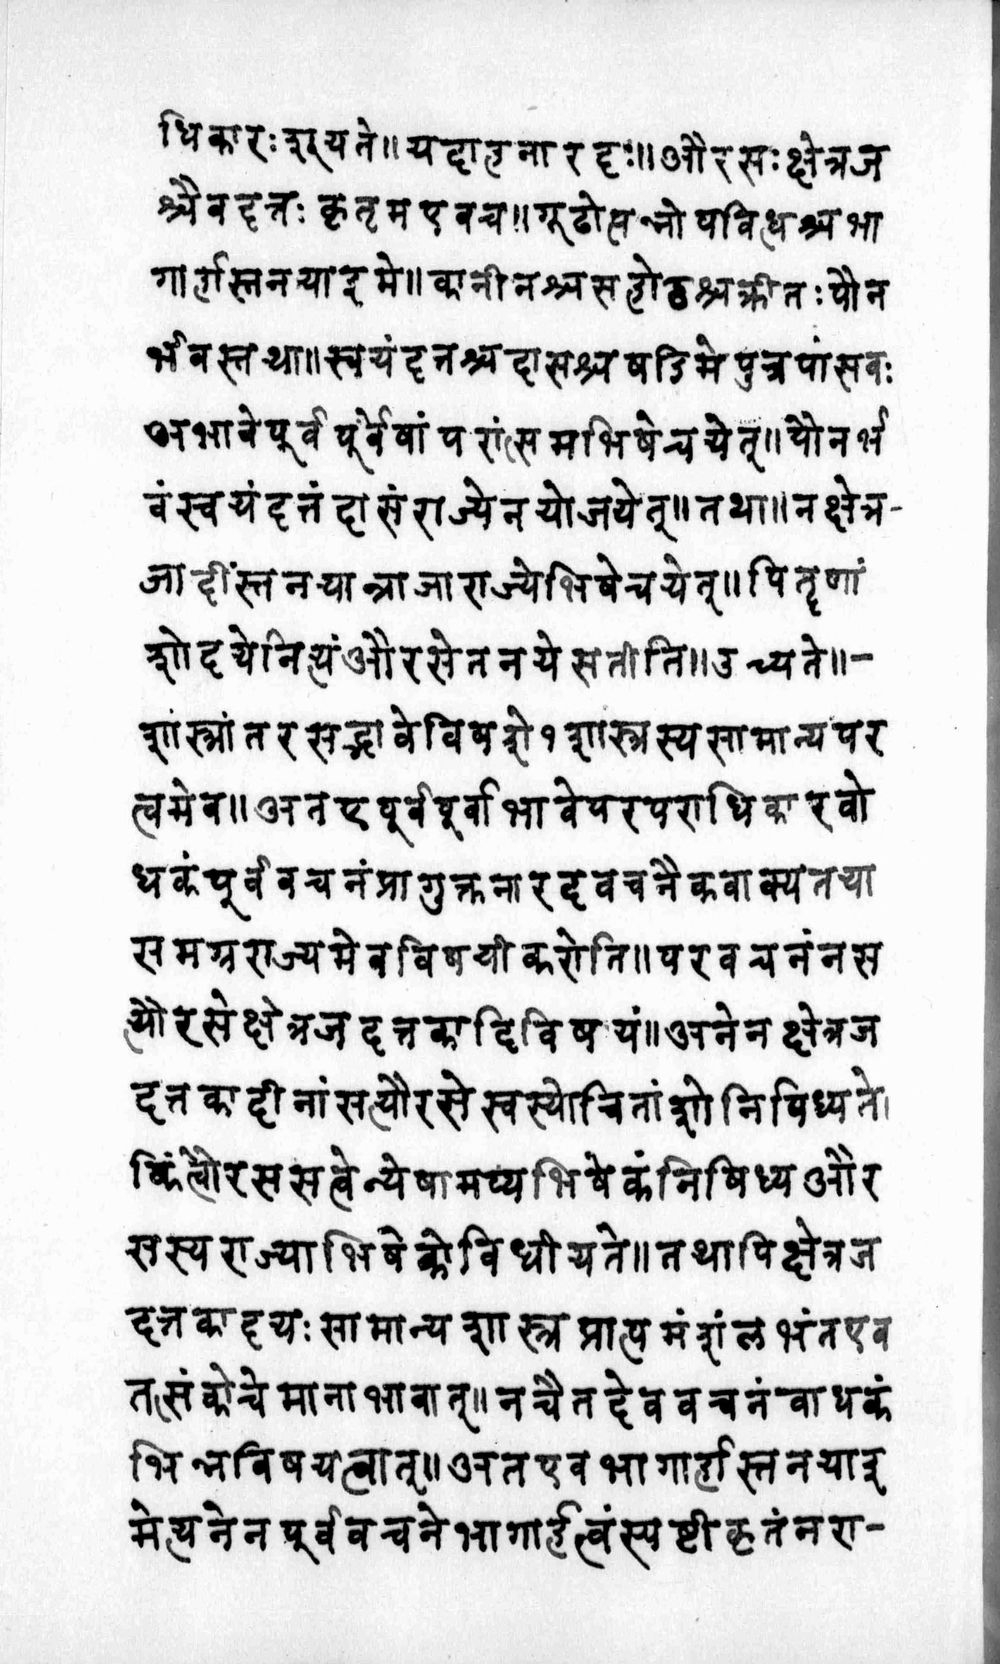 धिकारःश्रूयते॥यदाहनारदः॥औरसःक्षेत्रज
श्चैवदत्तःकृतृमएवच॥गूढोत्पन्नोपविधश्चभा
गार्हास्तनयाइमे॥कानीनश्चसहोढश्चक्रीतःपौन
र्भवस्तथा॥स्वयंदत्तश्चदासश्चषडिमेपुत्रपांसवः
अभावेपूर्वपूर्वेषांपरांत्समभिषेचयेत्॥पौनर्भ
वंस्वयंदत्तंदासंराज्येनयोजयेत्॥तथा॥नक्षेत्र-
जादींस्तनयान्राजाराज्येभिषेचयेत्॥पितॄणां
शोदयेनित्यंऔरसेतनयेसतीति॥उच्यते॥-
शांस्त्रांतरसद्भावेविषशे१शास्त्रस्यसामान्यपर
त्वमेव॥अतएपूर्वपूर्वाभावेपरपराधिकारवो
धकंपूर्ववचनंप्रागुक्तनारदवचनैकवाक्यतया
समग्रराज्यमेवविषयीकरोति॥परवचनंनस
त्यौरसेक्षेत्रजदत्तकादिविषयं॥अनेनक्षेत्रज
दत्तकादीनांसत्यौरसेस्वस्योचितांशोनिषिध्यते।
किंत्वौरससत्वेन्येषामप्यभिषेकंनिषिध्यऔर
सस्यराज्याभिषेकोविधीयते॥तथापिक्षेत्रज
दत्तकादयःसामान्यशास्त्रप्राप्यमंशंलभंतएव
तत्संकोचेमानाभावात्॥नचैतदेववचनंवाधकं
भिन्नविषयत्वात्॥अतएवभागार्हास्तनयाइ
मेत्यनेनपूर्ववचनेभागार्हत्वंस्पष्टीकृतंनरा-